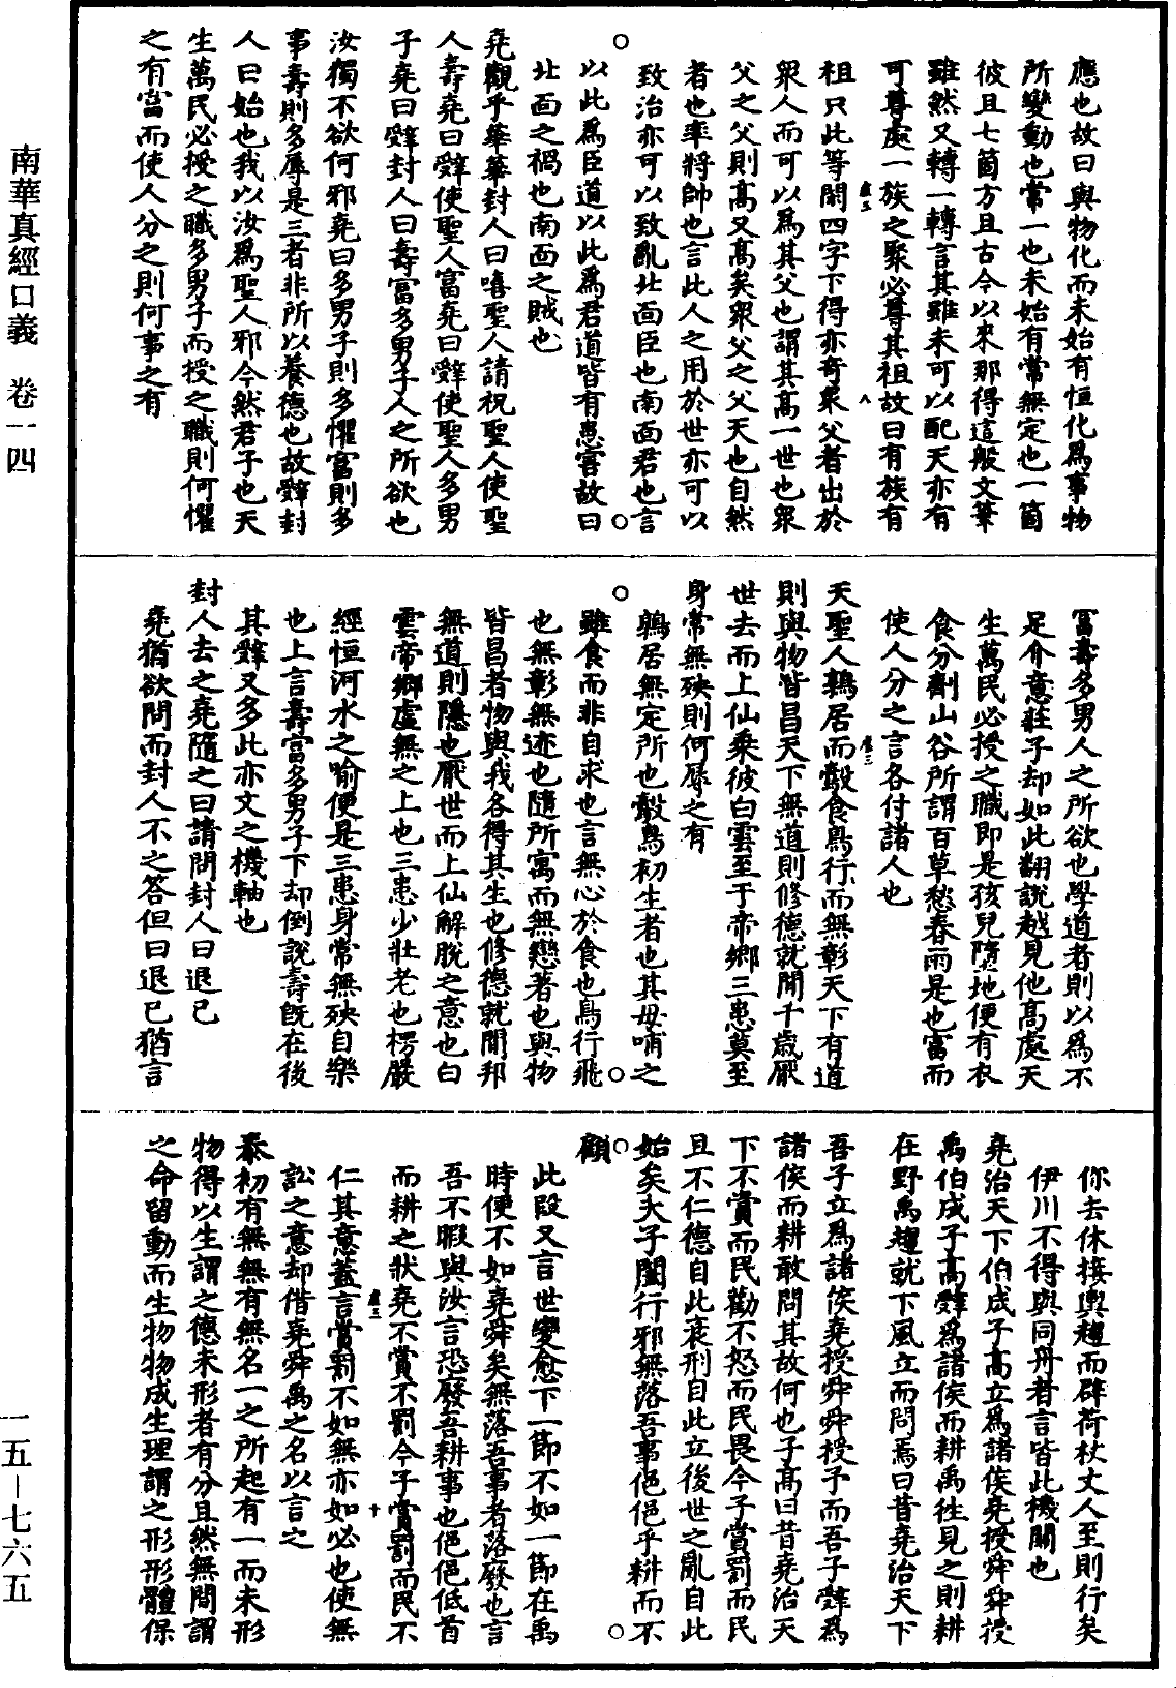 應也故曰與物化而未始有恒化爲事物
所變動也當一也未始有常無定也一箇
彼且七箇方且古今以來那得這般文筆
雖然又轉一轉言其雖未可以配天亦有
可尊處一族之聚必尊其祖故曰有族有
祖只此等閑四字下得亦奇衆父者出於
衆人而可以爲其父也謂其高一世也衆
父之父則高又高矣衆父之父天也自然
者也率將帥也言此人之用於世亦可以
致治亦可以致亂北面臣也南面君也言
以此爲臣道以此爲君道皆有患害故曰
北面之禍也南面之賊也
堯觀乎華華封人曰嘻聖人請祝聖人使聖
人壽堯曰辭使聖人富堯曰辭使聖人多男
子堯曰辭封人曰壽富多男子人之所欲也
汝獨不欲何邪堯曰多男子則多懼富則多
事壽則多辱是三者非所以養德也故辭封
人曰始也我以汝爲聖人邪今然君子也天
生萬民必授之職多男子而授之職則何懼
之有富而使人分之則何事之有
富壽多男人之所欲也學道者則以爲不
足介意莊子却如此翻說越見他高處天
生萬民必授之職即是孩兒墮地便有衣
食分劑山谷所謂百草愁春雨是也富而
使人分之言各付諸人也
天聖人鶉居而鷇食鳥行而無彰天下有道
則與物皆昌天下無道則修德就閒千歲厭
世去而上仙乘彼白雲至于帝鄉三患莫至
身常無殃則何辱之有
鶉居無定所也鷇鳥初生者也其母哺之
雖食而非自求也言無心於食也鳥行飛
也無彰無迹也隨所寓而無戀著也與物
皆昌者物與我各得其生也修德就閒邦
無道則隱也厭世而上仙解脫之意也白
雲帝鄉虛無之上也三患少壯老也楞嚴
經恒河水之喻便是三患身常無殃自樂
也上言壽富多男子下却倒說壽既在後
其辭又多此亦文之機軸也
封人去之堯隨之曰請問封人曰退已
堯猶欲問而封人不之答但曰退已猶言
你去休接輿趨而辟荷杖丈人至則行矣
伊川不得與同舟者言皆此機關也
堯治天下伯成子高立爲諸侯堯授舜舜授
禹伯成子高辭爲諸侯而耕禹往見之則耕
在野禹趨就下風立而問焉曰昔堯治天下
吾子立爲諸侯堯授舜舜授予而吾子辭爲
諸侯而耕敢問其故何也子高曰昔堯治天
下不賞而民勸不怒而民畏今子賞罰而民
且不仁德自此衰刑自此立後世之亂自此
始矣夫子闔行邪無落吾事俋俋乎耕而不
顧
此段又言世變愈下一節不如一節在禹
時便不如堯舜矣無落吾事者落廢也言
吾不暇與汝言恐廢吾耕事也俋俋低首
而耕之狀堯不賞不罰今子賞罰而民不
仁其意蓋言賞罰不如無亦如必也使無
訟之意却借堯舜禹之名以言之
泰初有無無有無名一之所起有一而未形
物得以生謂之德未形者有分且然無間謂
之命留動而生物物成生理謂之形形體保
南華真經口義 卷一四
一五—七六五